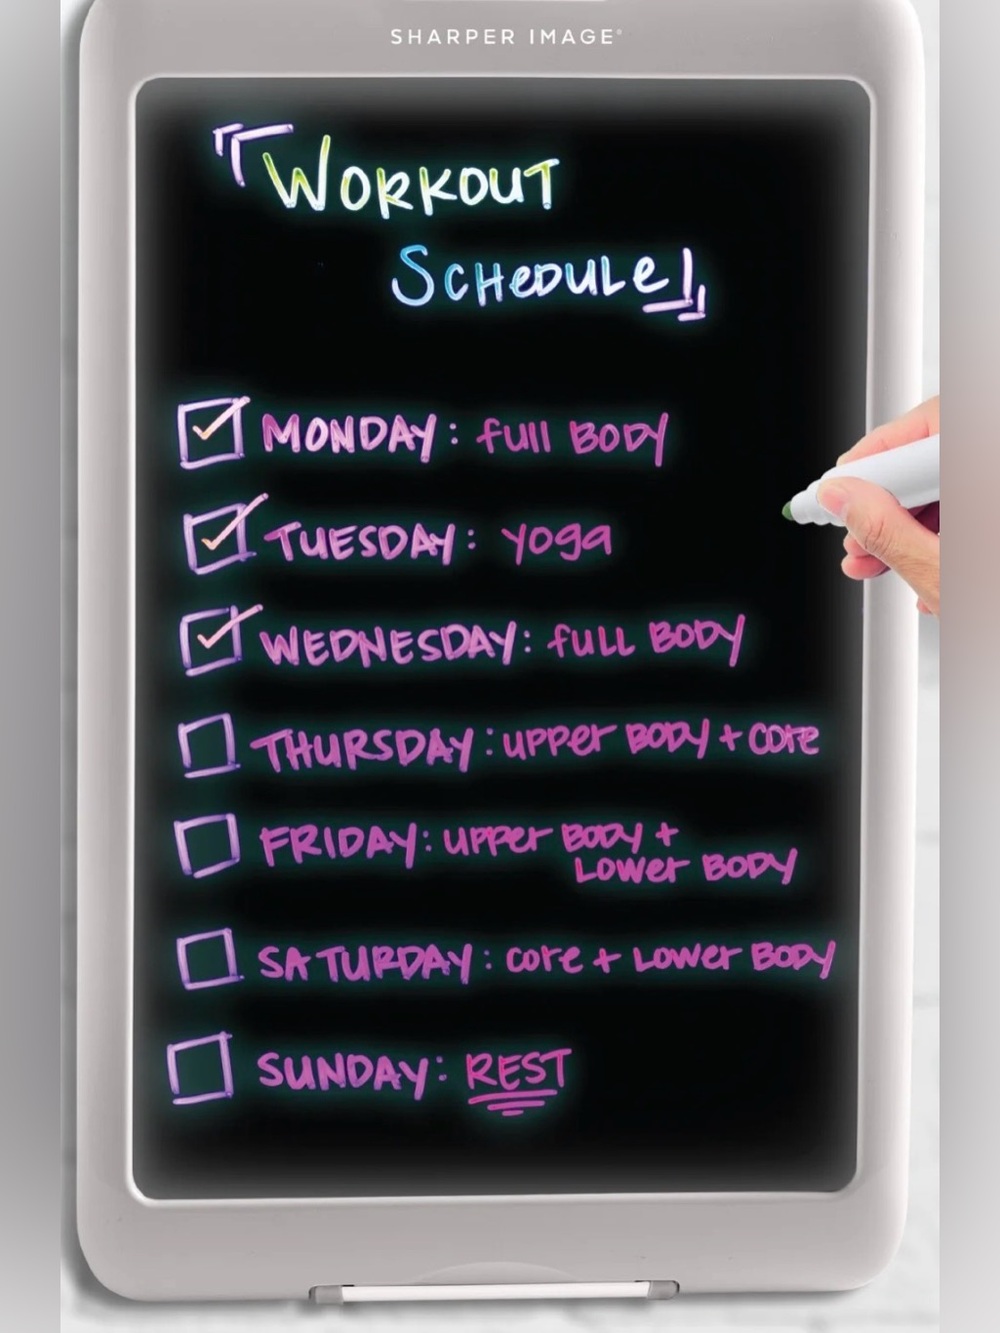 SHARPER IMAGE®
WORKOUT
SCHEDULE
MONDAY: full BODY
TUESDAY: yoga
WEDNESDAY: fULL BODY
THURSDAY: upper BODY + core
FRIDAY: upper BODY +
Lower BODY
SATURDAY: core + Lower BODY
SUNDAY: REST